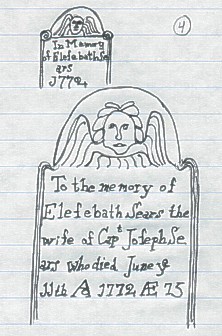 4
In Memory
of Elesebath Se
ars
1772
To the memory of
Elesebath Sears the
wife of Capt Joseph Se
ars who died June ye
11th A 1772 Æ 75